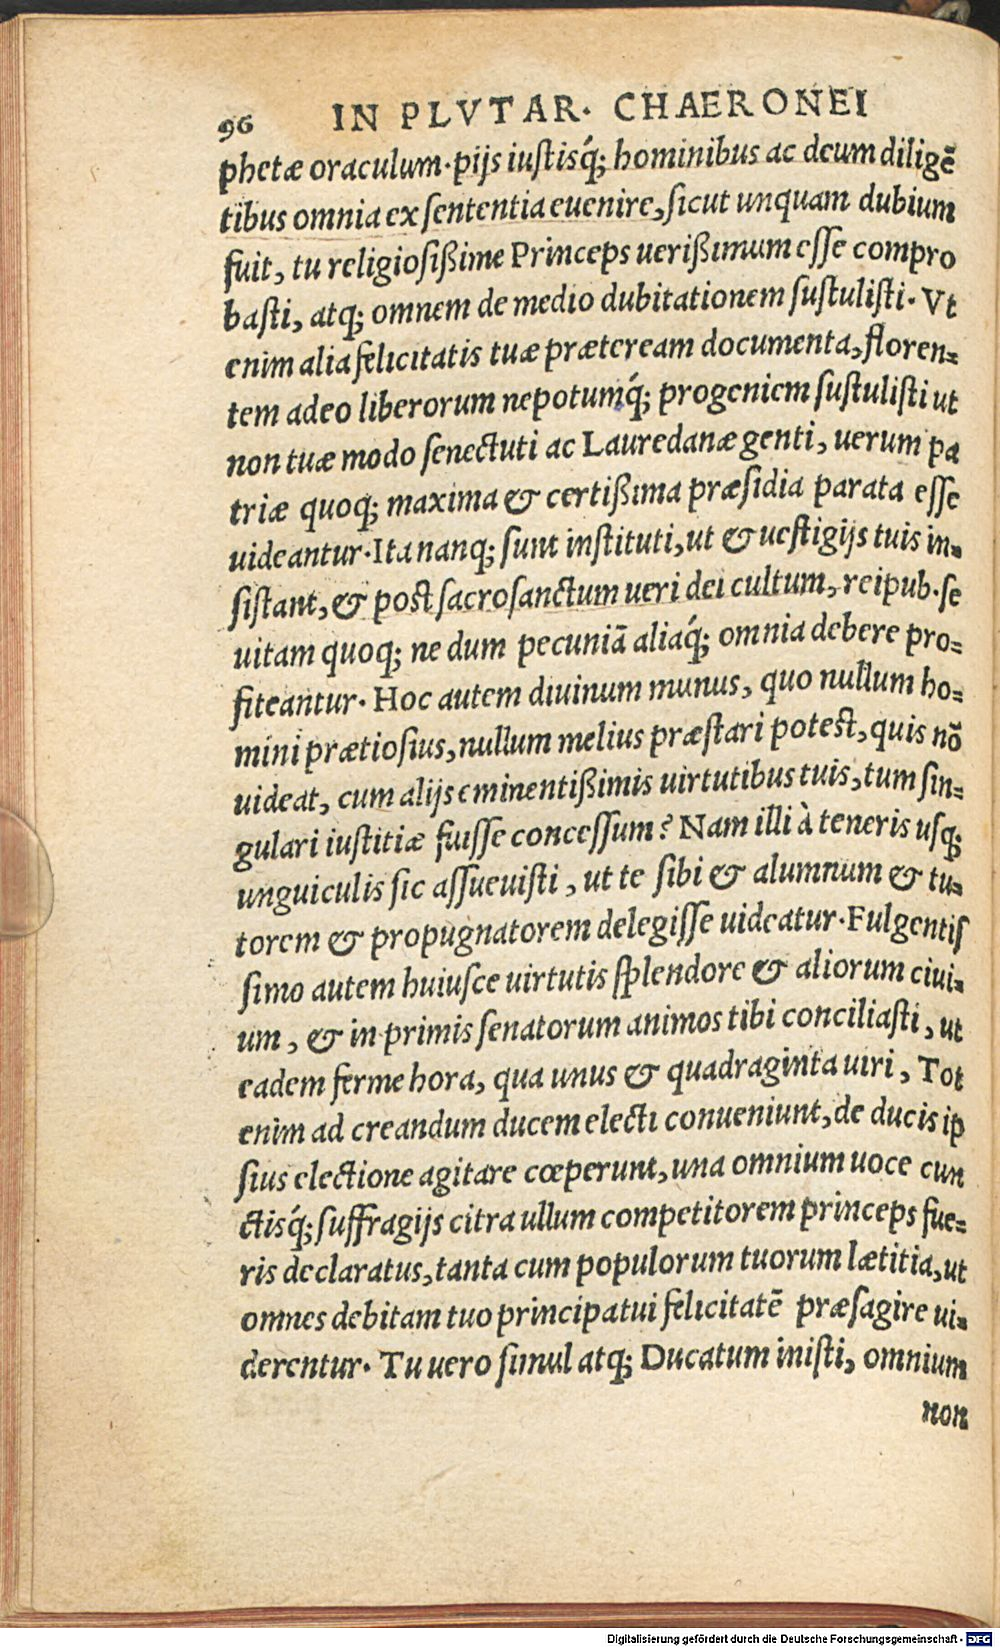 96 IN PLVTAR. CHAERONEI
phetæ oraculum. pijs iustisq́; hominibus ac deum diligē
tibus omnia ex sententia euenire, sicut unquam dubium
fuit, tu religiosißime Princeps uerißimum esse compro
basti, atq; omnem de medio dubitationem sustulisti. Vt
enim alia felicitatis tuæ prætereram documenta, floren-
tem adeo liberorum nepotumq́; progeniem sustulisti ut
non tuæ modo senectuti ac Lauredanæ genti, uerum pa
triæ quoq; maxima & certißima præsidia parata esse
uideantur. Ita nanq; sunt instituti, ut & uestigijs tuis in-
sistant, & post sacrosanctum ueri dei cultum, reipub. se
uitam quoq; ne dum pecuniā aliaq́; omnia debere pro-
fiteantur. Hoc autem diuinum munus, quo nullum ho-
mini prætiosius, nullum melius præstari potest, quis nō
uideat, cum alijs eminentißimis uirtutibus tuis, tum sin-
gulari iustitiæ fuisse concessum? Nam illi à teneris usq;
unguiculis sic assueuisti, ut te sibi & alumnum & tu-
torem & propugnatorem delegisse uideatur. Fulgentis
simo autem huiusce uirtutis splendore & aliorum ciui-
um, & in primis senatorum animos tibi conciliasti, ut
eadem ferme hora, qua unus & quadraginta uiri, Tot
enim ad creandum ducem electi conueniunt, de ducis ip
sius electione agitare cœperunt, una omnium uoce cun
ctisq́; suffragijs citra ullum competitorem princeps fue-
ris declaratus, tanta cum populorum tuorum lætitia, ut
omnes debitam tuo principatui felicitatē præsagire ui-
derentur. Tu uero simul atq; Ducatum inisti, omnium
non
Digitalisierung gefördert durch die Deutsche Forschungsgemeinschaft - DFG